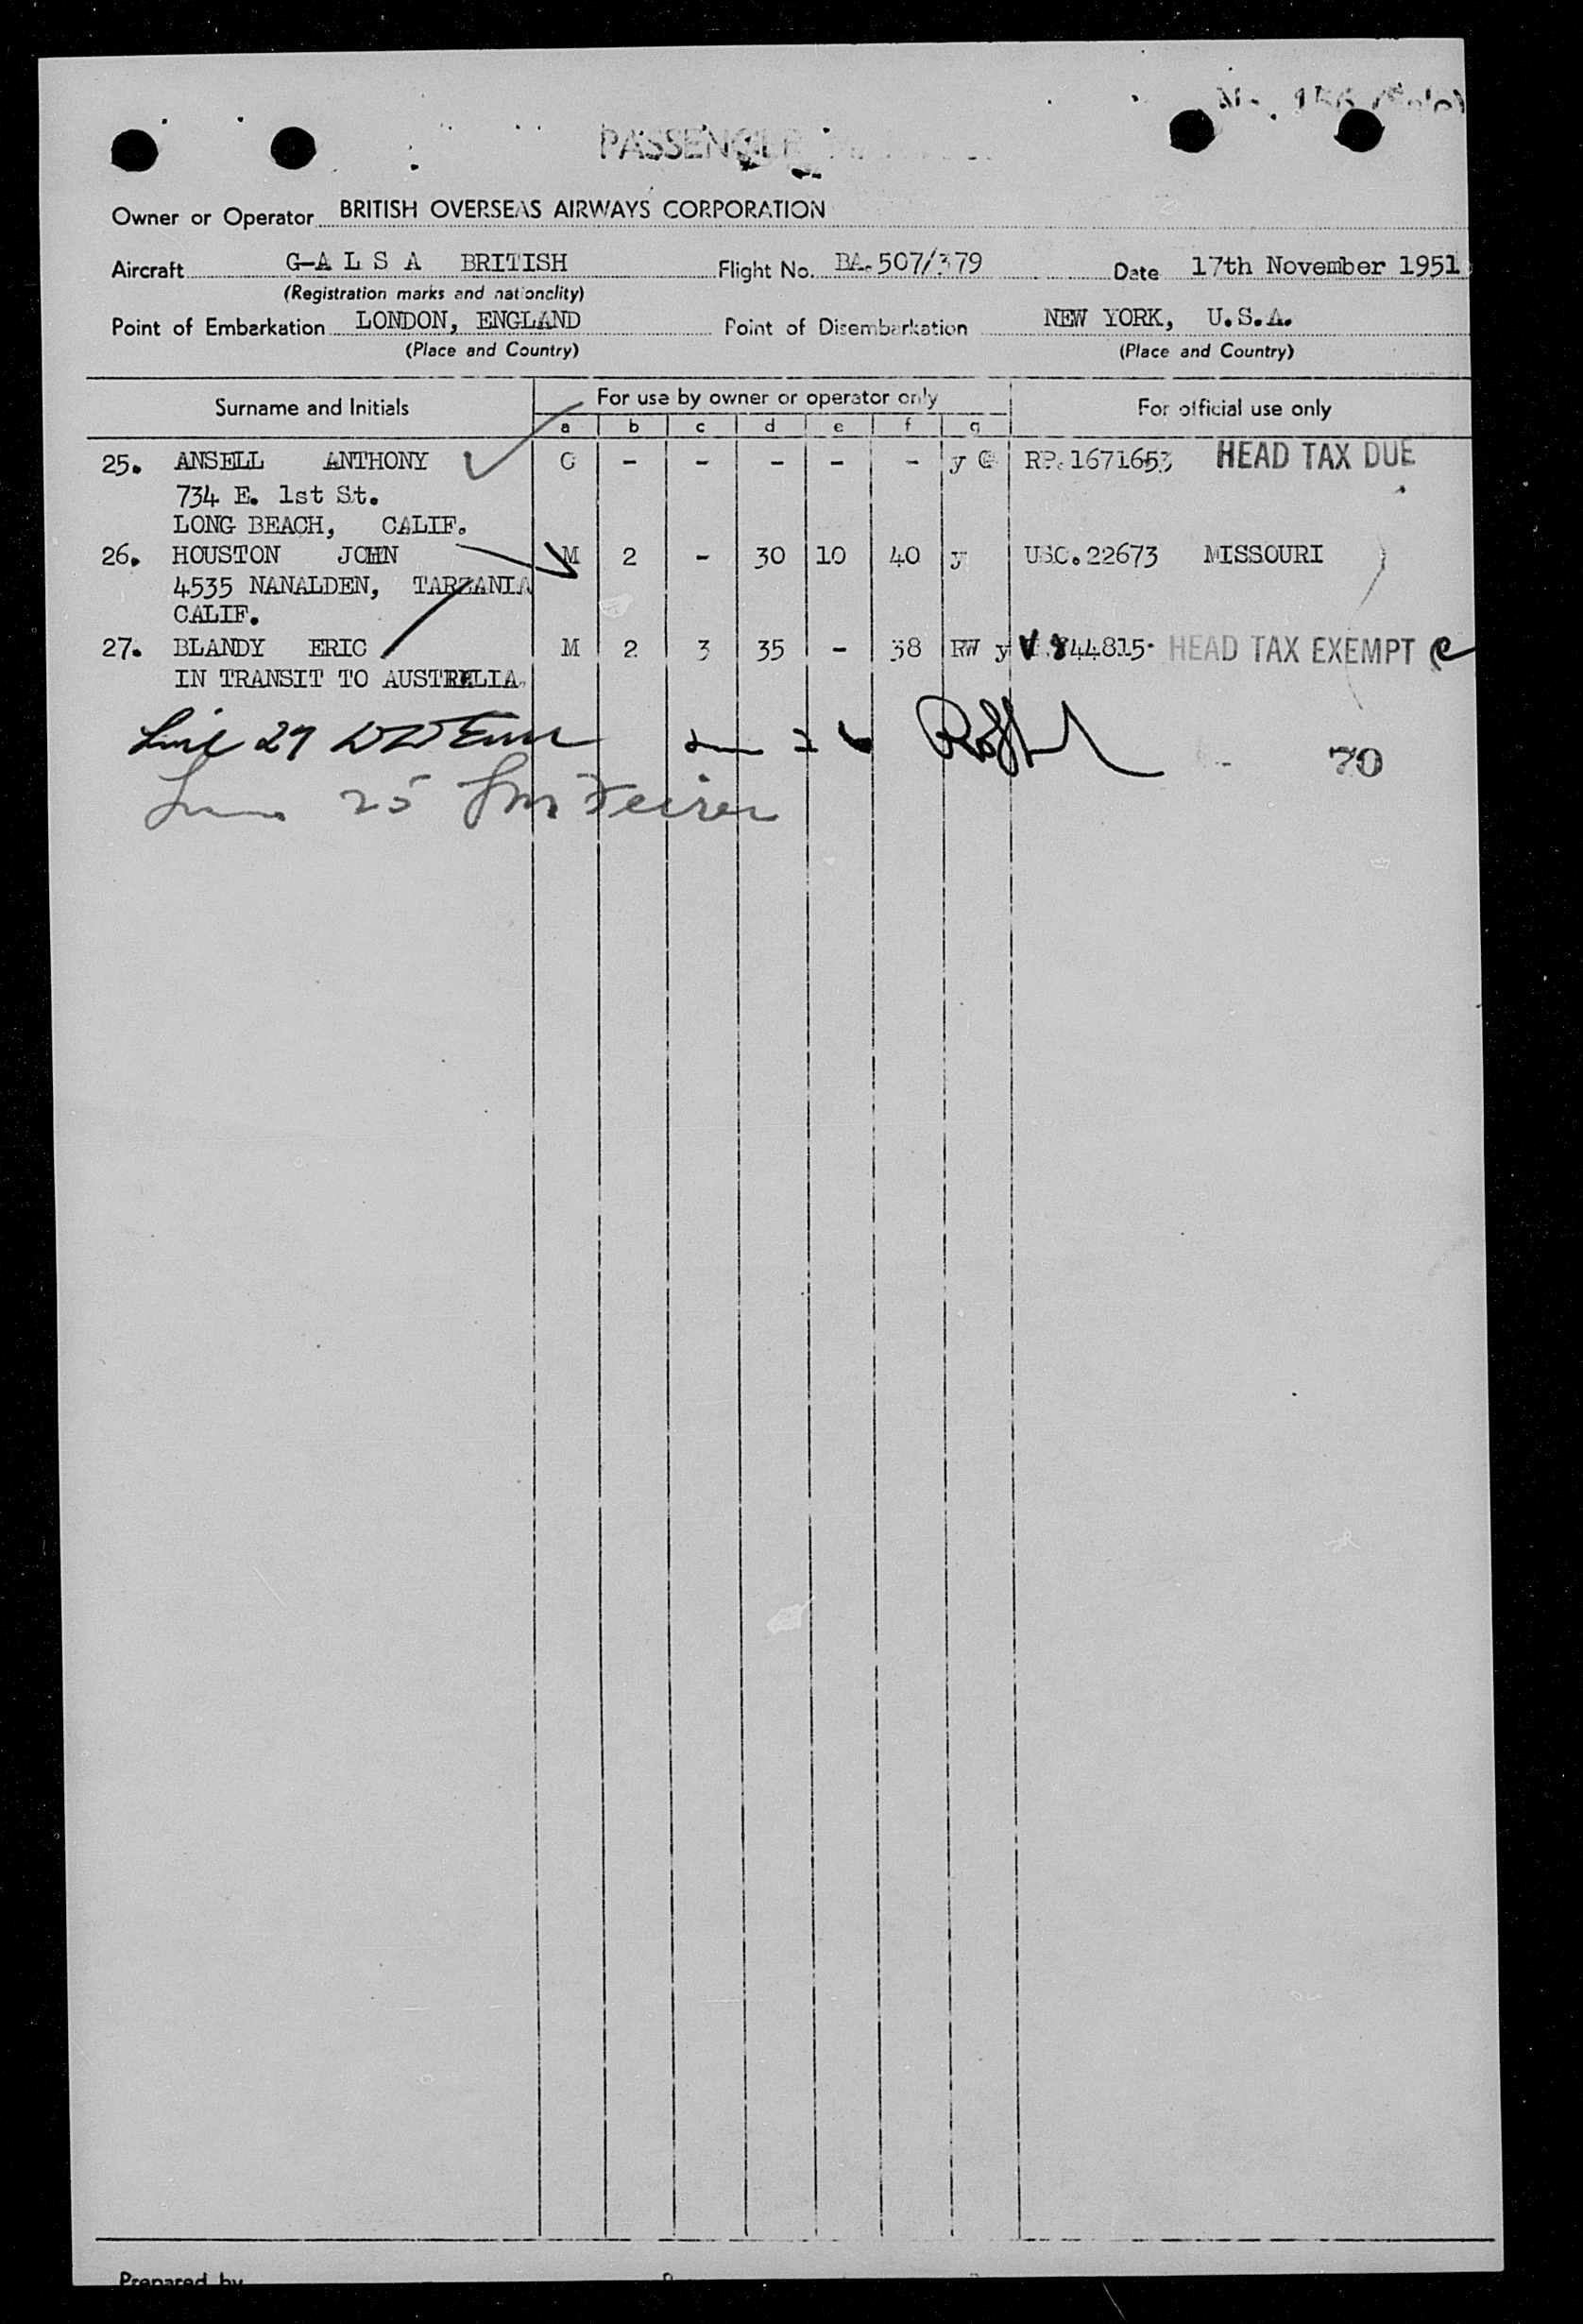 PASSENGER
Owner or Operator BRITISH OVERSEAS AIRWAYS CORPORATION
Aircraft G-A L S A BRITISH Flight No. BA.507/379 Date 17th November 1951
(Registration marks and nationality)
Point of Embarkation LONDON, ENGLAND Point of Disembarkation NEW YORK, U.S.A.
(Place and Country) (Place and Country)
Surname and Initials For use by owner or operator only For official use only
a b c d e f g
25. ANSELL ANTHONY C - - - - - y G RP.1671653 HEAD TAX DUE
734 E. 1st St.
LONG BEACH, CALIF.
26. HOUSTON JOHN M 2 - 30 10 40 y USC.22673 MISSOURI
4535 NANALDEN, TARZANIA
CALIF.
27. BLANDY ERIC M 2 3 35 - 38 RW y V.844815- HEAD TAX EXEMPT
IN TRANSIT TO AUSTRALIA.
Line 27 26
70
Line 25
Prepared by